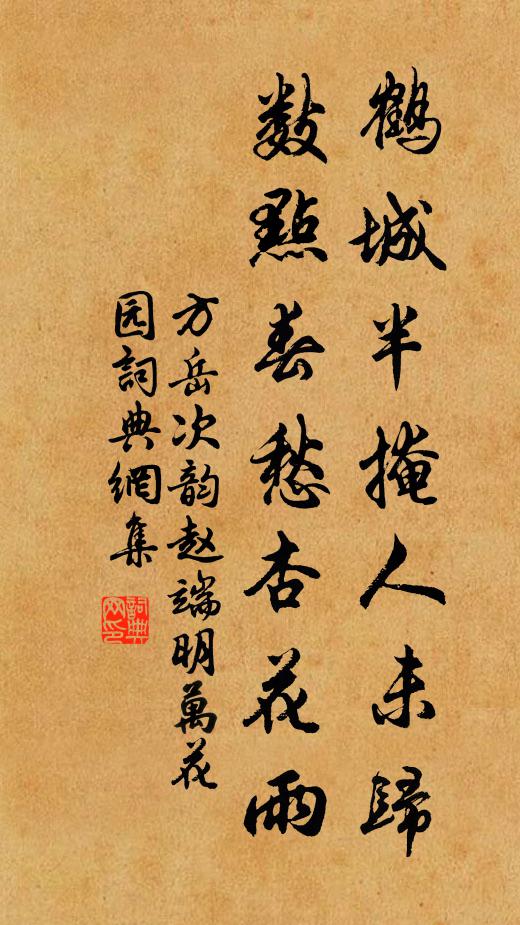 鶴城半掩人未歸
數點春愁杏花雨
方岳次韵赵端明萬花
园詞典網集
詞典
网印